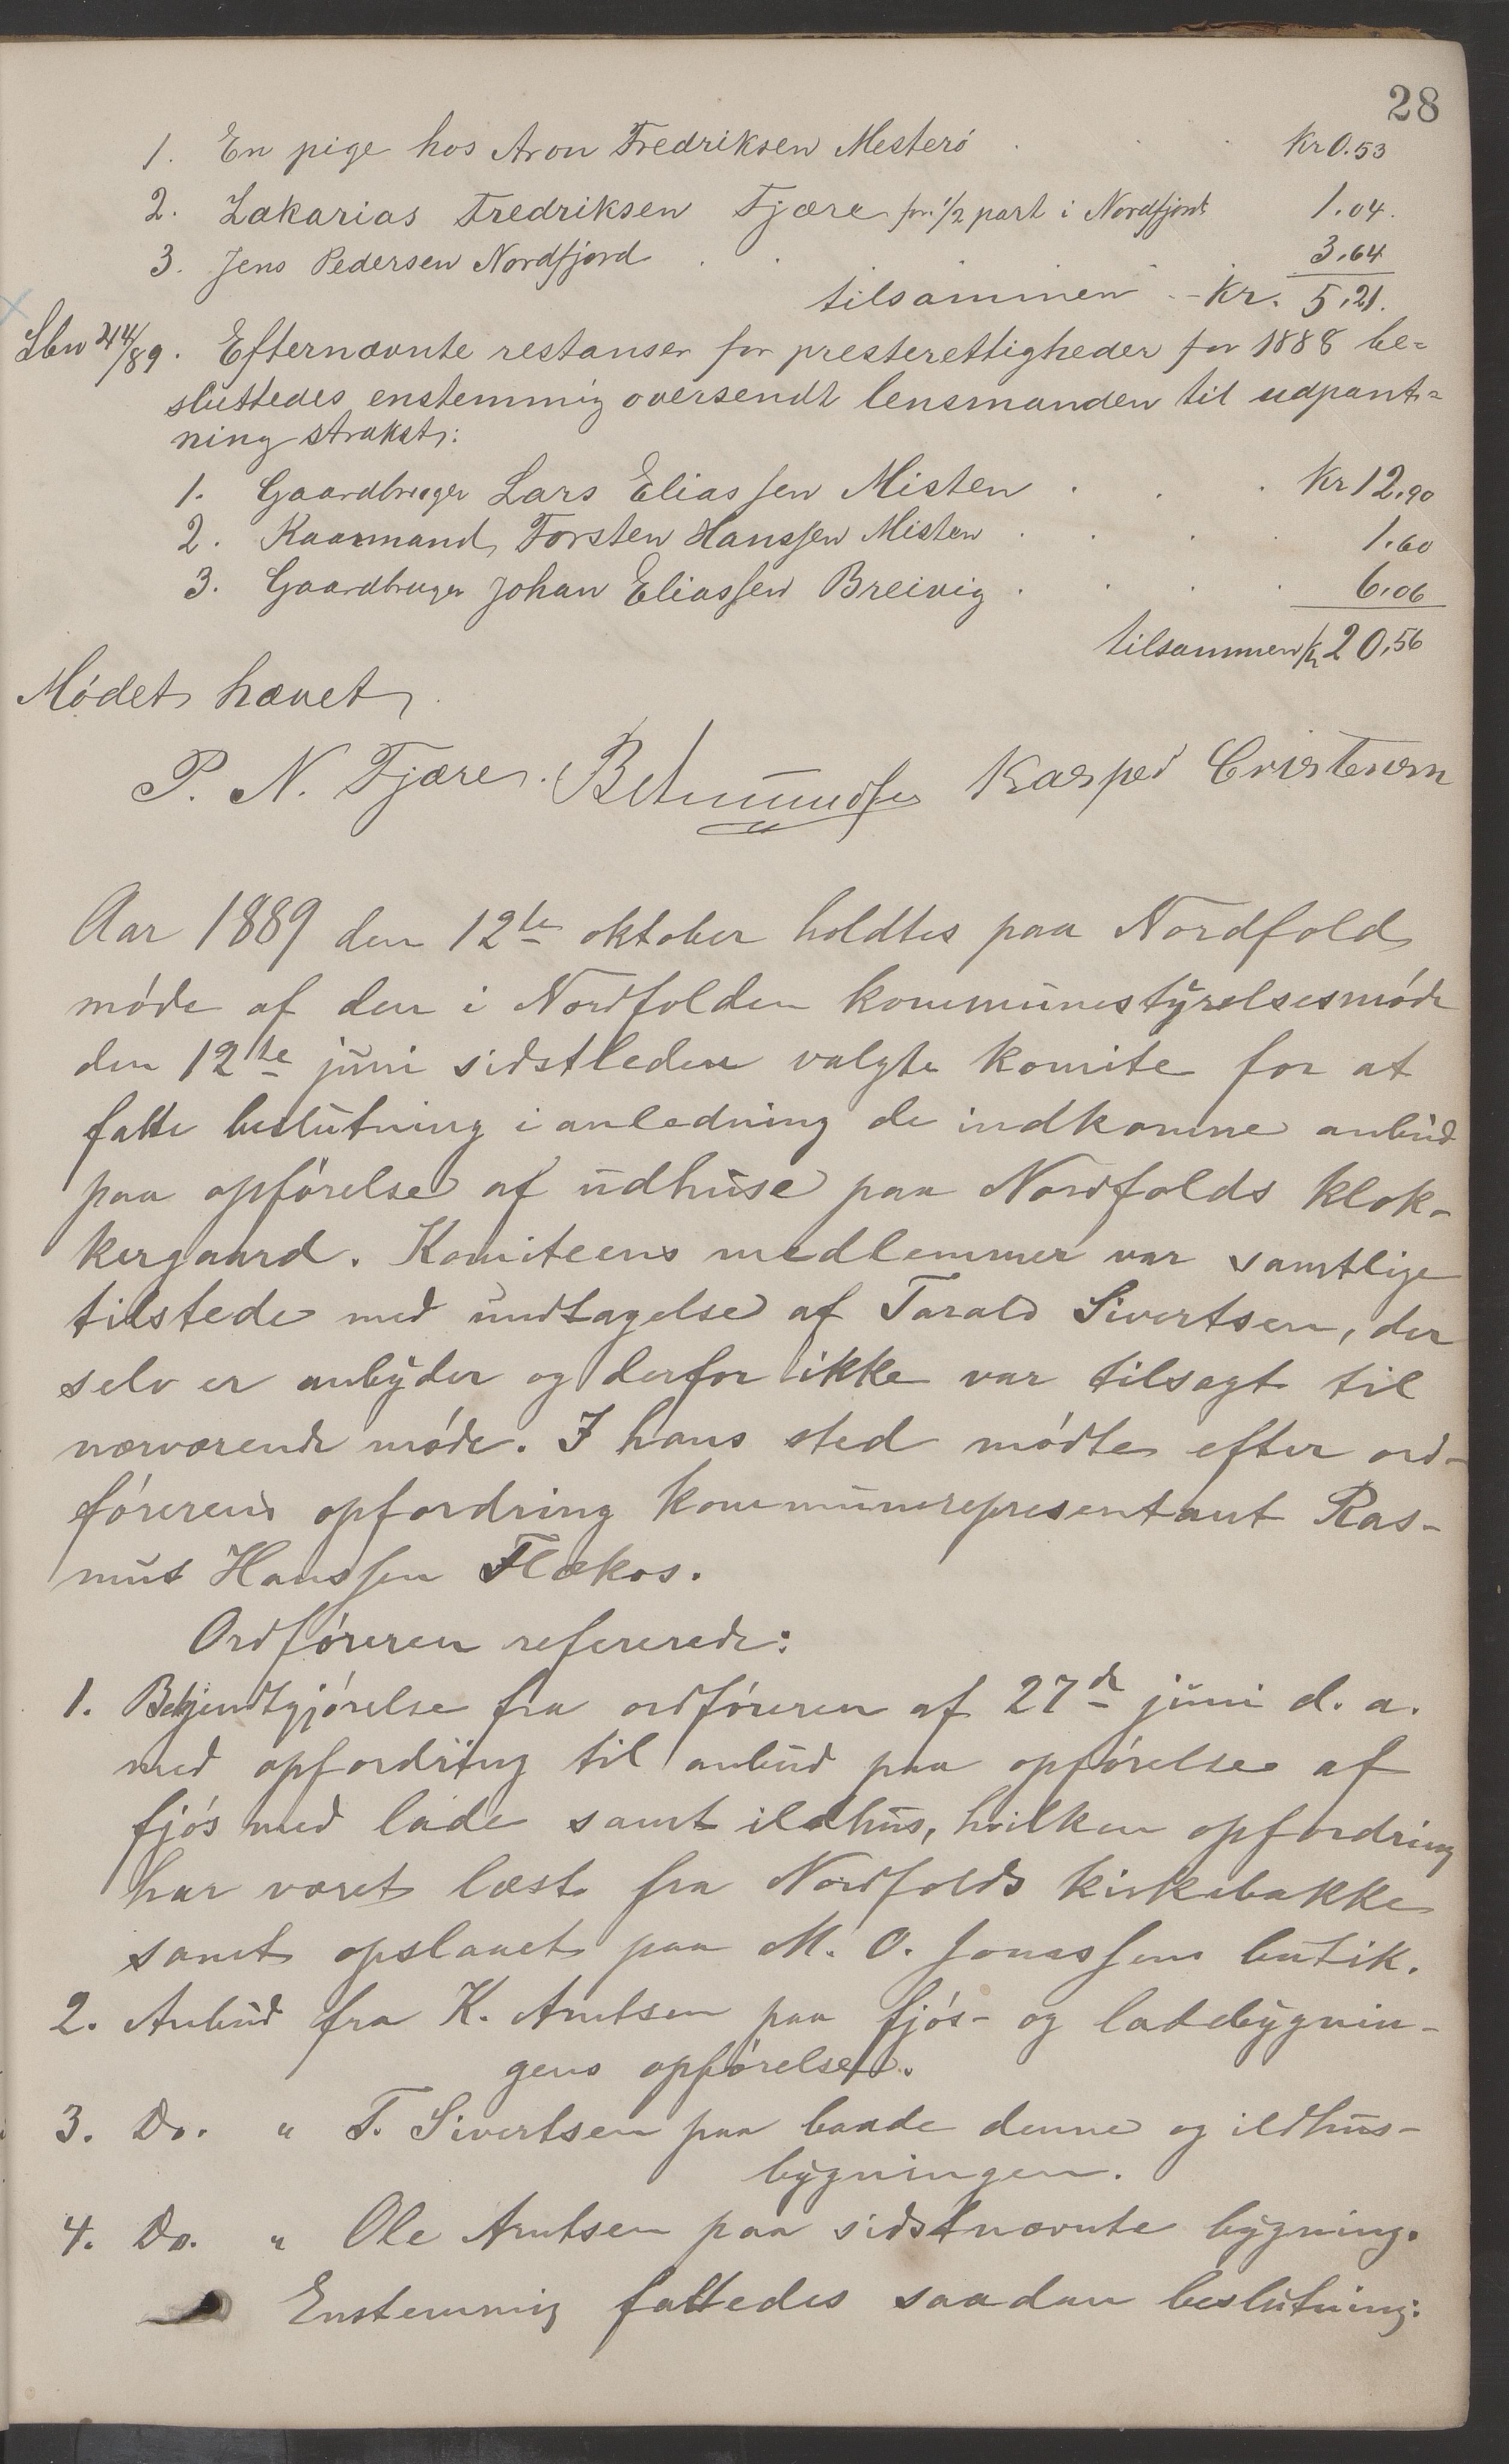 28
1. En pige hos Aron Fredriksen Mesterö Kr 0.53
2. Zakarias Fredriksen Fjære for 1/2 part i Nordfjord 1.04.
3. Jens Pedersen Nordfjord 3,64
tilsammen - Kr. 5,21.
Efternævnte restanser for presterettigheder for 1888 be=
sluttedes enstemmig oversendt lensmanden til udpant=
ning strakst:
1. Gaardbruger Lars Eliassen Misten Kr 12,90
2. Kaarmand Torsten Hanssen Misten 1.60
3. Gaardbruger Johan Eliassen Breivig 6,06
tilsammen Kr 20,56
Mödet hævet
P. N. Fjære. Kasper
Aar 1889 den 12te oktober holdtes paa Nordfold
möde af den i Nordfolden kommunestyrelsesmöde
den 12te juni sidstleden valgte komite for at
fatte beslutning i anledning de indkomne anbud
paa opförelse af udhuse paa Nordfolds klok-
kergaard. Komiteens medlemmer var samtlige
tilstede med undtagelse af Tarald Sivertsen, der
selv er anbyder og derfor ikke var tilsagt til
nærværende möde. I hans sted mödte efter ord-
förerens opfordring kommunerepresentant Ras-
mus Hanssen Flækos.
Ordföreren refererede:
1. Bekjendtgjörelse fra ordföreren af 27de juni d. a.
med opfordring til anbud paa opförelse af
fjös med lade samt ildhus, hvilken opfordring
har været læst fra Nordfolds kirkebakke
samt opslaaet paa M. O. Jonassens butik.
2. Anbud fra K. Arntsen paa fjös- og ladebygnin-
gens opförelse.
3. Do. " T. Sivertsen paa baade denne og ildhus-
bygningen.
4. Do. " Ole Arntsen paa sidstnævnte bygning.
Enstemmig fattedes saadan beslutning: